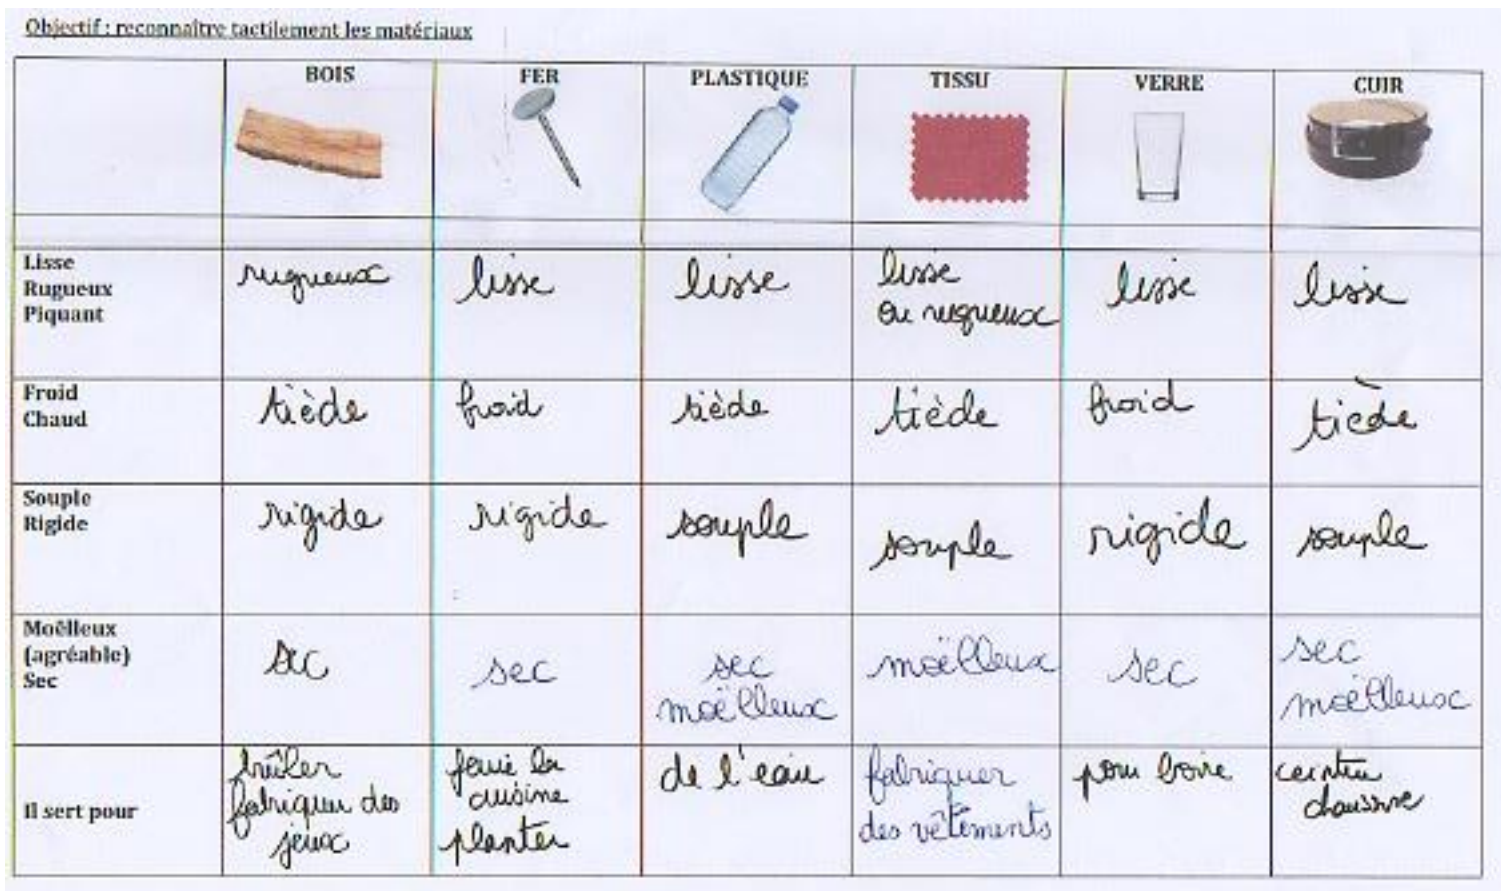 Objectif : reconnaître tactilement les matériaux
BOIS FER PLASTIQUE TISSU VERRE CUIR
Lisse
Rugueux
Piquant
rugueux lisse lisse lisse
ou rugueux
lisse lisse
Froid
Chaud
tiède froid tiède tiède froid tiède
Souple
Rigide
rigide rigide souple souple rigide souple
Moëlleux
(agréable)
Sec
sec sec sec
moëlleux
moëlleux sec sec
moëlleux
Il sert pour
brûler
fabriquer des
jeux
la
cuisine
planter
de l'eau
fabriquer
des vêtements
pour boire
chaussure